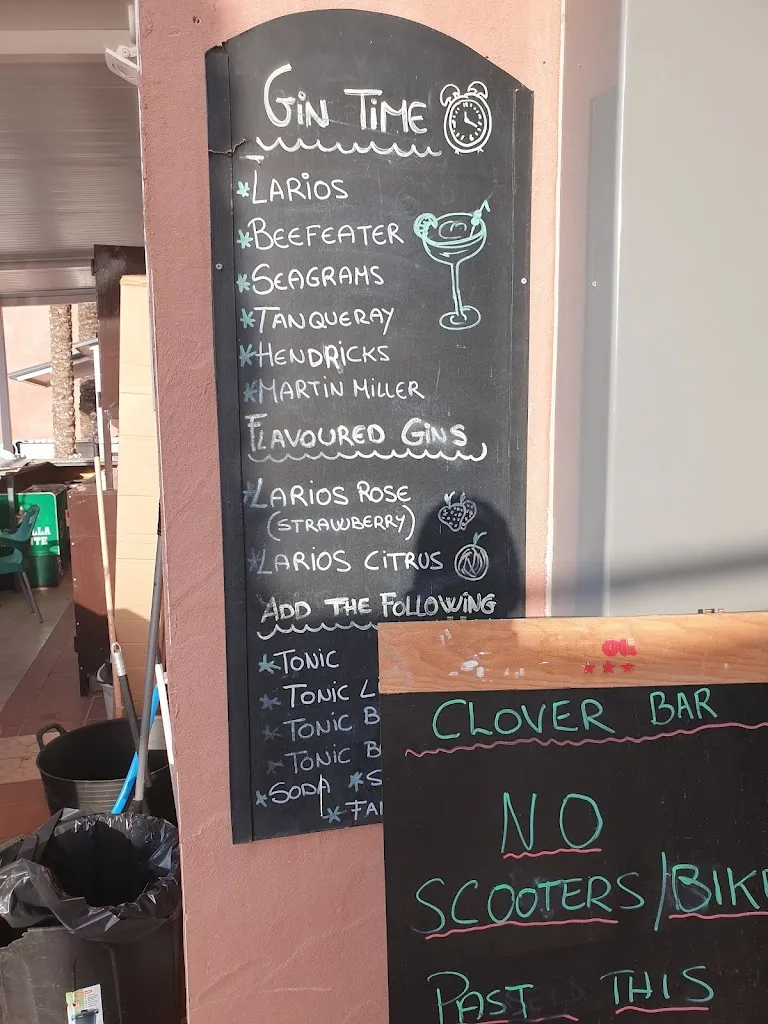 GIN TIME
*LARIOS
*BEEFEATER
*SEAGRAMS
*TANQUERAY
*HENDRICKS
*MARTIN MILLER
FLAVOURED GINS
*LARIOS ROSE
(STRAWBERRY)
*LARIOS CITRUS
ADD THE FOLLOWING
*TONIC
*TONIC L
*TONIC B
*TONIC B
*SODA *S
*FA
CLOVER BAR
NO
SCOOTERS/BIKE
PAST THIS